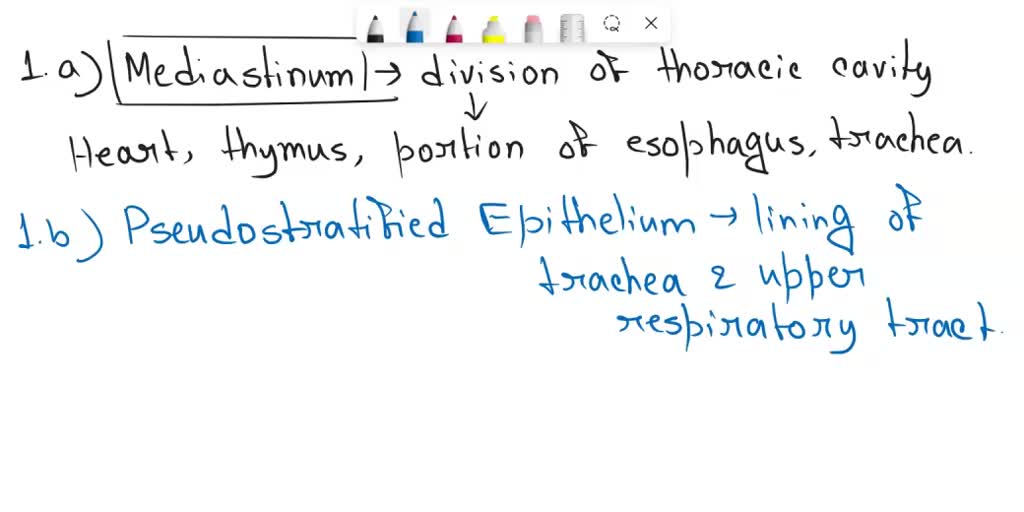 1.a) Mediastinum → division of thoracic cavity
↓
Heart, thymus, portion of esophagus, trachea.
1.b) Pseudostratified Epithelium → lining of
trachea & upper
respiratory tract.